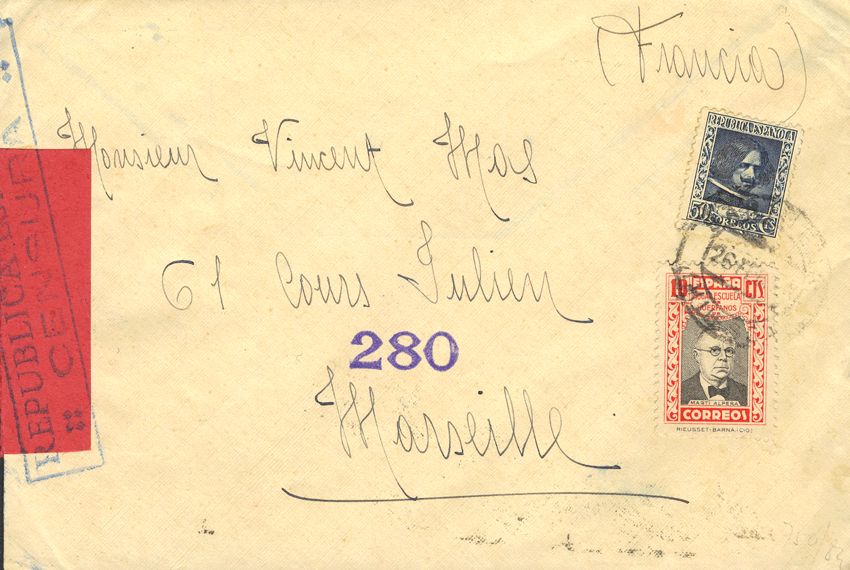 (Francia)
Monsieur Vincent Mas
61 Cours Julien
280
Marseille
REPUBLICA ESPAÑOLA
50 CORREOS CTS
26
10 CTS
ESCUELA
HUERFANOS
MARTI ALPERA
CORREOS
RIEUSSET-BARNA-(CIO)
REPUBLICA
CENSURA